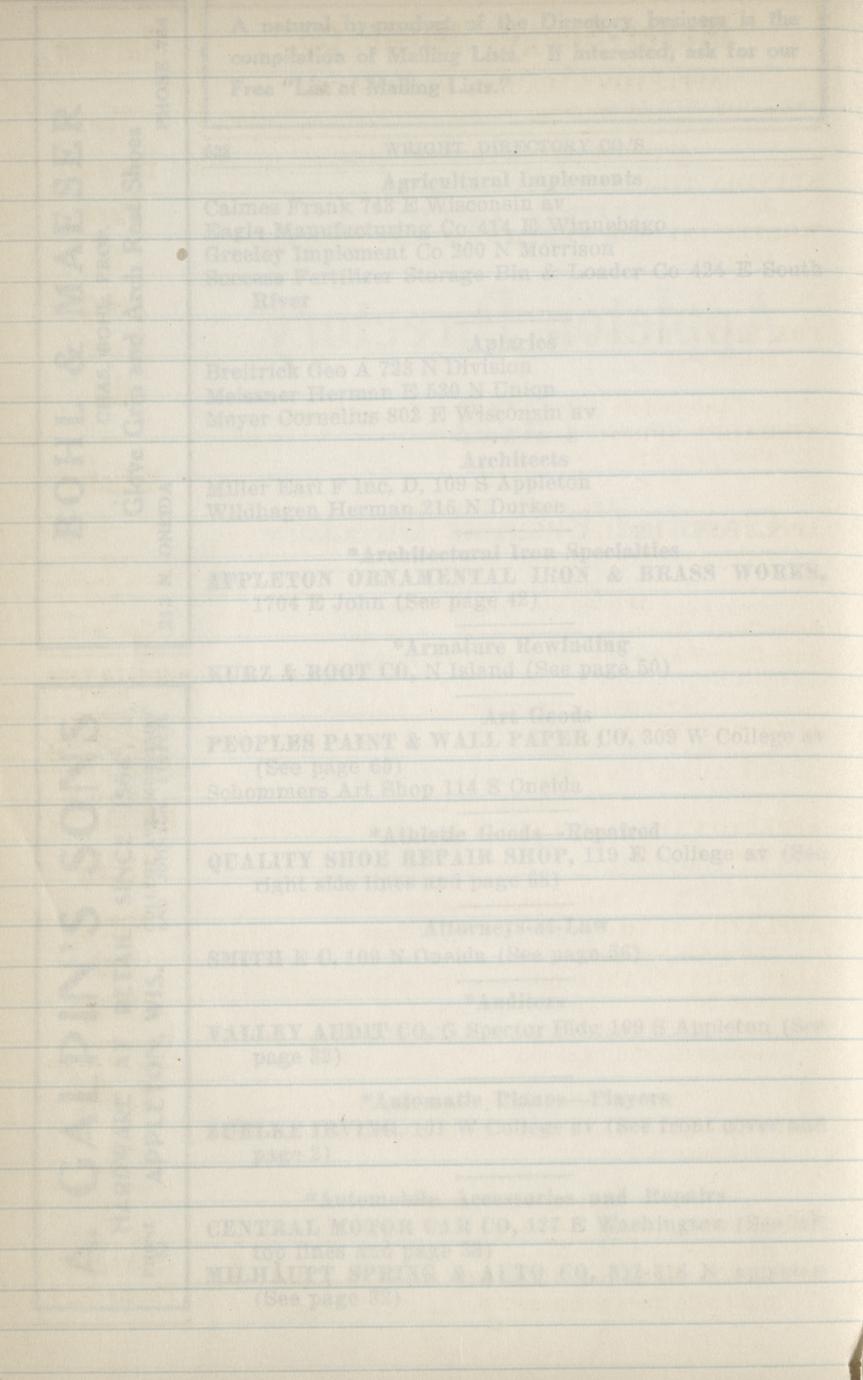 A natural by-product of the Directory business is the
compilation of Mailing Lists. If interested, ask for our
Free "List of Mailing Lists."
WRIGHT DIRECTORY CO.'S
Agricultural Implements
Calmes Frank 748 E Wisconsin av
Eagle Manufacturing Co 414 E Winnebago
Greeley Implement Co 200 N Morrison
Success Fertilizer Storage Bin & Loader Co 424 E South
River
Apiaries
Breitrick Geo A 723 N Division
Meissner Herman E 530 N Union
Meyer Cornelius 802 E Wisconsin av
Architects
Miller Earl F Inc, D, 109 S Appleton
Wildhagen Herman 215 N Durkee
*Architectural Iron Specialties
APPLETON ORNAMENTAL IRON & BRASS WORKS,
1704 E John (See page 42)
*Armature Rewinding
KURZ & ROOT CO, N Island (See page 50)
Art Goods
PEOPLES PAINT & WALL PAPER CO, 309 W College av
(See page 65)
Schommers Art Shop 114 S Oneida
*Athletic Goods—Repaired
QUALITY SHOE REPAIR SHOP, 119 E College av (See
right side lines and page 68)
Attorneys-at-Law
SMITH E C, 109 N Oneida (See page 56)
*Auditors
VALLEY AUDIT CO, G Spector Bldg 109 S Appleton (See
page 32)
*Automatic Pianos—Players
ZUELKE IRVING, 101 W College av (See front cover and
page 2)
*Automobile Accessories and Repairs
CENTRAL MOTOR CAR CO, 127 E Washington (See
top lines and page)
MILHAUPT SPRING & AUTO CO, N Appleton
(See page 32)
BOHL & MAESER
CHAS. BOHL, PROP.
Glove Grip and Arch Rest Shoes
N. ONEIDA
PHONE 764
A. GALPIN'S SONS
HARDWARE AT RETAIL SINCE
APPLETON, WIS.